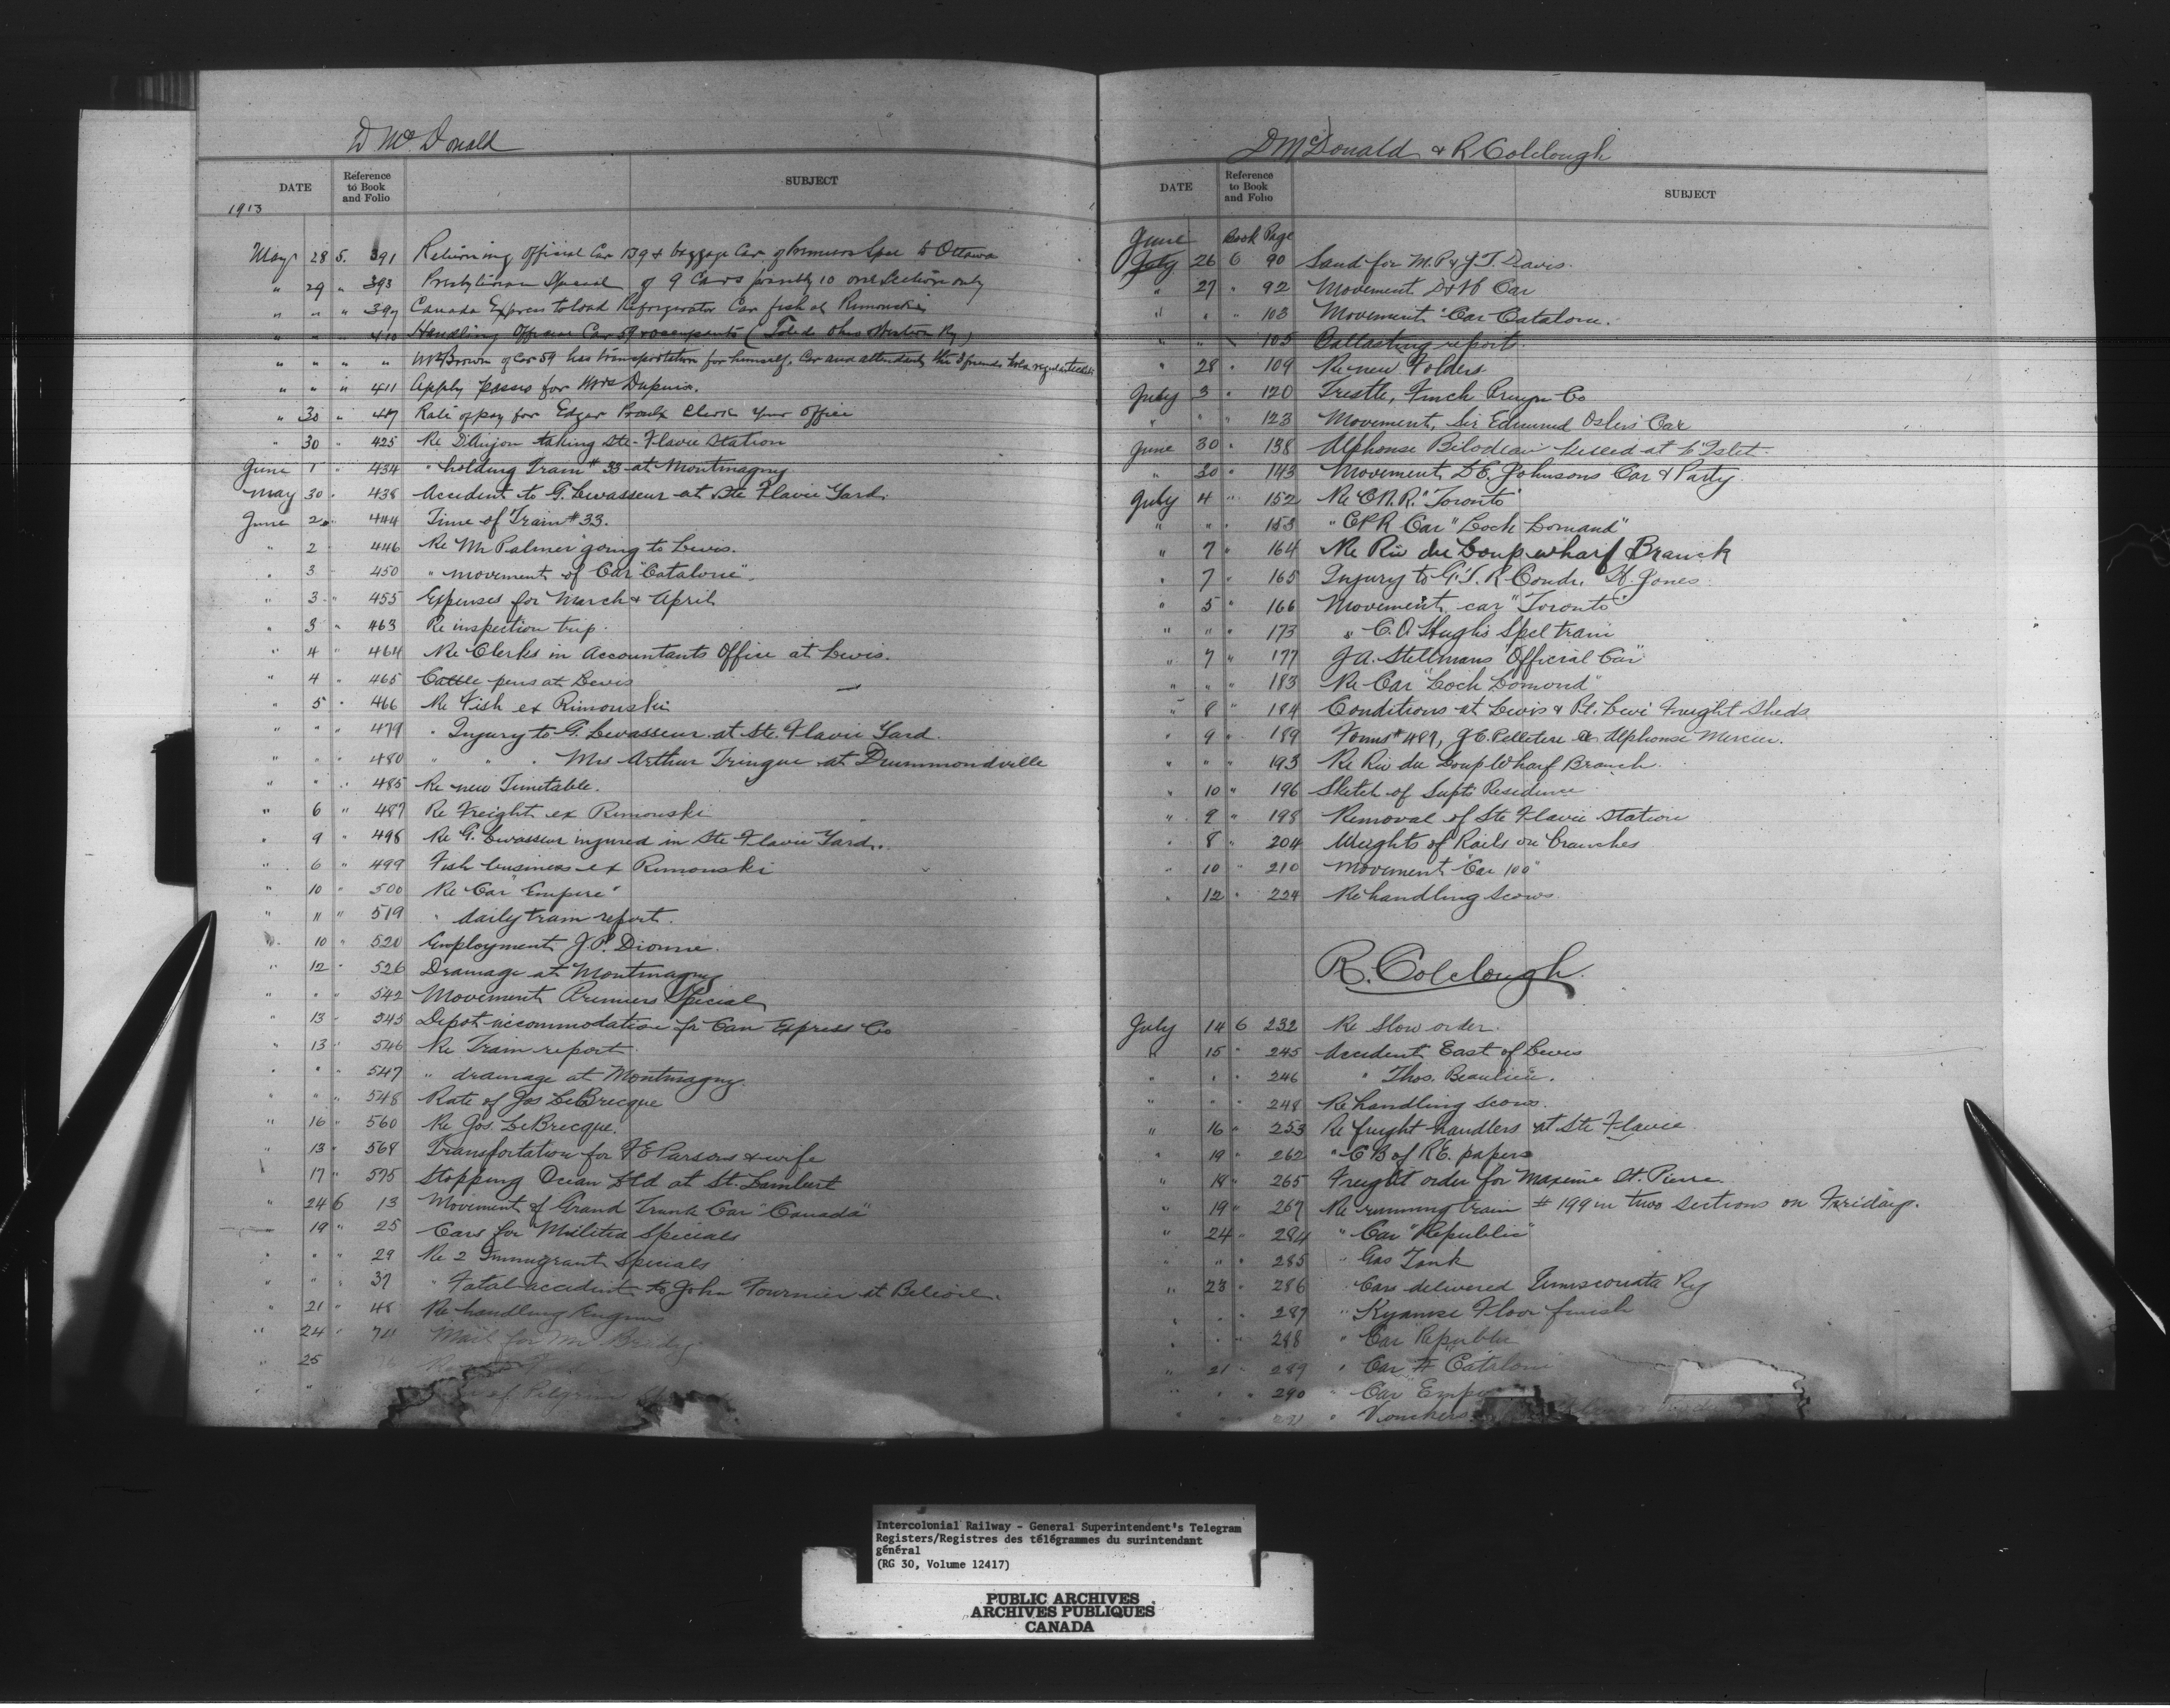 D McDonald
DATE Reference to Book and Folio SUBJECT
1913
May 28 5. 391 Returning Official Car 139 & baggage Car of Premiers Spcl to Ottawa
" 29 " 393 Presbyterian Special of 9 Cars possibly 10 one section only
" " " 397 Canada Express to load Refrigerator Car fish at Rimouski
" " " 410 Handling Official Car 59 & occupants (Toledo Ohio Western Ry)
" " " " Mr Brown of Car 59 has transportation for himself, Car and attendants the 3 friends
" " " 411 Apply passes for Mrs Dupuis.
" 30 " 417 Rate of pay for Edgar Proulx Clerk your office
" 30 " 425 Re D'Anjou taking Ste-Flavie Station
June 1 " 434 " holding Train # 33 at Montmagny
May 30 " 438 Accident to G. Levasseur at Ste Flavie Yard.
June 2 " 444 Time of Train # 33.
" 2 " 446 Re Mr Palmer going to Levis.
" 3 " 450 " movement of Car "Catalone".
" 3 " 455 Expenses for March & April
" 3 " 463 Re inspection trip.
" 4 " 464 Re Clerks in Accountants Office at Levis.
" 4 " 465 Cattle pens at Levis
" 5 " 466 Re Fish ex Rimouski
" " " 479 " Injury to G. Levasseur at Ste. Flavie Yard.
" " " 480 " " " Mrs Arthur Tringue at Drummondville
" " " 485 Re new Timetable.
" 6 " 487 Re Freight ex Rimouski
" 9 " 498 Re G. Levasseur injured in Ste Flavie Yard.
" 6 " 499 Fish business ex Rimouski
" 10 " 500 Re Car "Empire"
" 11 " 519 " daily train report.
" 10 " 520 Employment J. P. Dionne.
" 12 " 526 Drainage at Montmagny
" " " 542 Movement Premiers Special
" 13 " 545 Depot accommodation for Can Express Co
" 13 " 546 Re Train report
" " " 547 " drainage at Montmagny.
" " " 548 Rate of Jos LeBrecque
" 16 " 560 Re Jos. LeBrecque.
" 13 " 568 Transportation for F E Parsons & wife
" 17 " 575 Stopping Ocean Ltd at St. Lambert
" 24 6 13 Movement of Grand Trunk Car "Canada"
" 19 " 25 Cars for Militia Specials
" " " 29 Re 2 Immigrant Specials
" " " 37 " Fatal accident to John Fournier at Beloeil.
" 21 " 48 Re handling Engines
" 24 " Mail for Mr Brady
" 25
of Pilgrim
D McDonald & R Colclough
DATE Reference to Book and Folio SUBJECT
Book Page
June July 26 6 90 Sand for M.P & J.T. Davis.
" 27 " 92 Movement D&H Car
" " " 103 Movement "Car Catalone.
" " " 105 Ballasting report.
" 28 " 109 Re new Folders
July 3 " 120 Trestle, Finch Pruyn Co
" " " 123 Movement, Sir Edmund Oslers Car
June 30 " 138 Alphonse Bilodeau killed at L'Islet.
" 30 " 143 Movement D.E. Johnsons Car & Party
July 4 " 152 Re C.N.R. "Toronto"
" " " 153 " CPR Car "Loch Lomand"
" 7 " 164 Re Riv du Loup wharf Branch
" 7 " 165 Injury to G.T.R Condr. H. Jones
" 5 " 166 Movement car "Toronto"
" " " 173 " C. A Hughs Spcl train
" 7 " 177 J A. Stellmans "Official Car"
" " " 183 Re Car "Loch Lomond"
" 8 " 184 Conditions at Levis & Pt. Levi Freight Sheds
" 9 " 189 Forms # 489, J E. Pelletier & Alphonse Mercier.
" " " 193 Re Riv du Loup Wharf Branch.
" 10 " 196 Sketch of Supts Residence
" 9 " 198 Removal of Ste Flavie Station
" 8 " 204 Weights of Rails on branches
" 10 " 210 Movement "Car 100"
" 12 " 224 Re handling scows
R. Colclough.
July 14 6 232 Re Slow order.
" 15 " 245 Accident East of Levis
" " " 246 " Thos. Beaulieu.
" " " 248 Re handling scows.
" 16 " 253 Re freight handlers at Ste Flavie
" 19 " 262 " C B of R.E. papers
" 18 " 265 Freight order for Maxime St. Pierre
" 19 " 267 Re running train # 199 in two sections on Fridays.
" 24 " 284 " Car "Republic"
" " " 285 " Gas Tank
" 23 " 286 " Cars delivered Temiscouata Ry
" " " 287 " Kyanize Floor finish
" " " 288 " Car Republic
" 21 " 289 " Car Catalone
" " " 290 " Car "Empi
" Vouchers
Intercolonial Railway - General Superintendent's Telegram
Registers/Registres des télégrammes du surintendant
général
(RG 30, Volume 12417)
PUBLIC ARCHIVES
ARCHIVES PUBLIQUES
CANADA